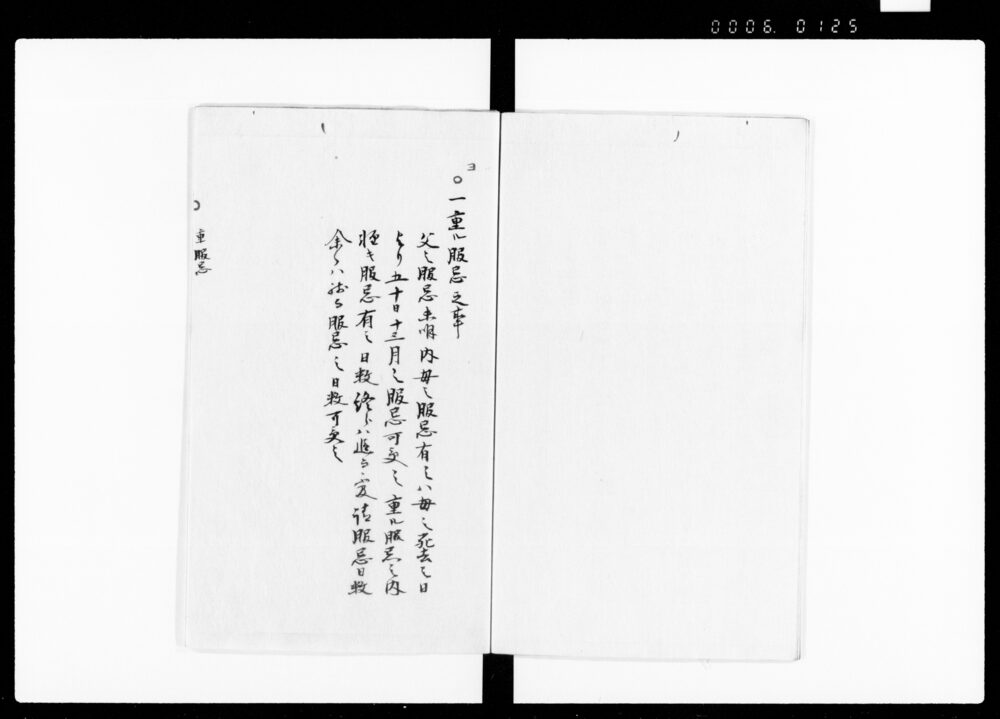 0006. 0125
ヨ
○一重ル服忌之事
父之服忌未明内母之服忌有之ハ母之死去之日
より五十日十三月之服忌可受之重ル服忌之内
軽キ服忌有之日数終らハ追而不受請服忌日数
余らハ残る服忌之日数可受之
○ 重服忌